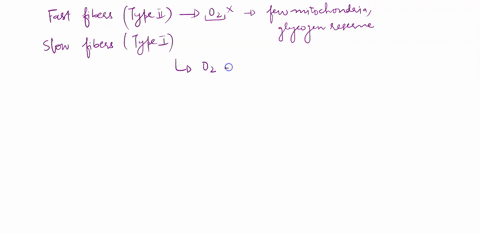 Fast fibers (Type II) → O₂ x → few mitochondria,
glycogen reserve
Slow fibers (Type I)
↳ O₂